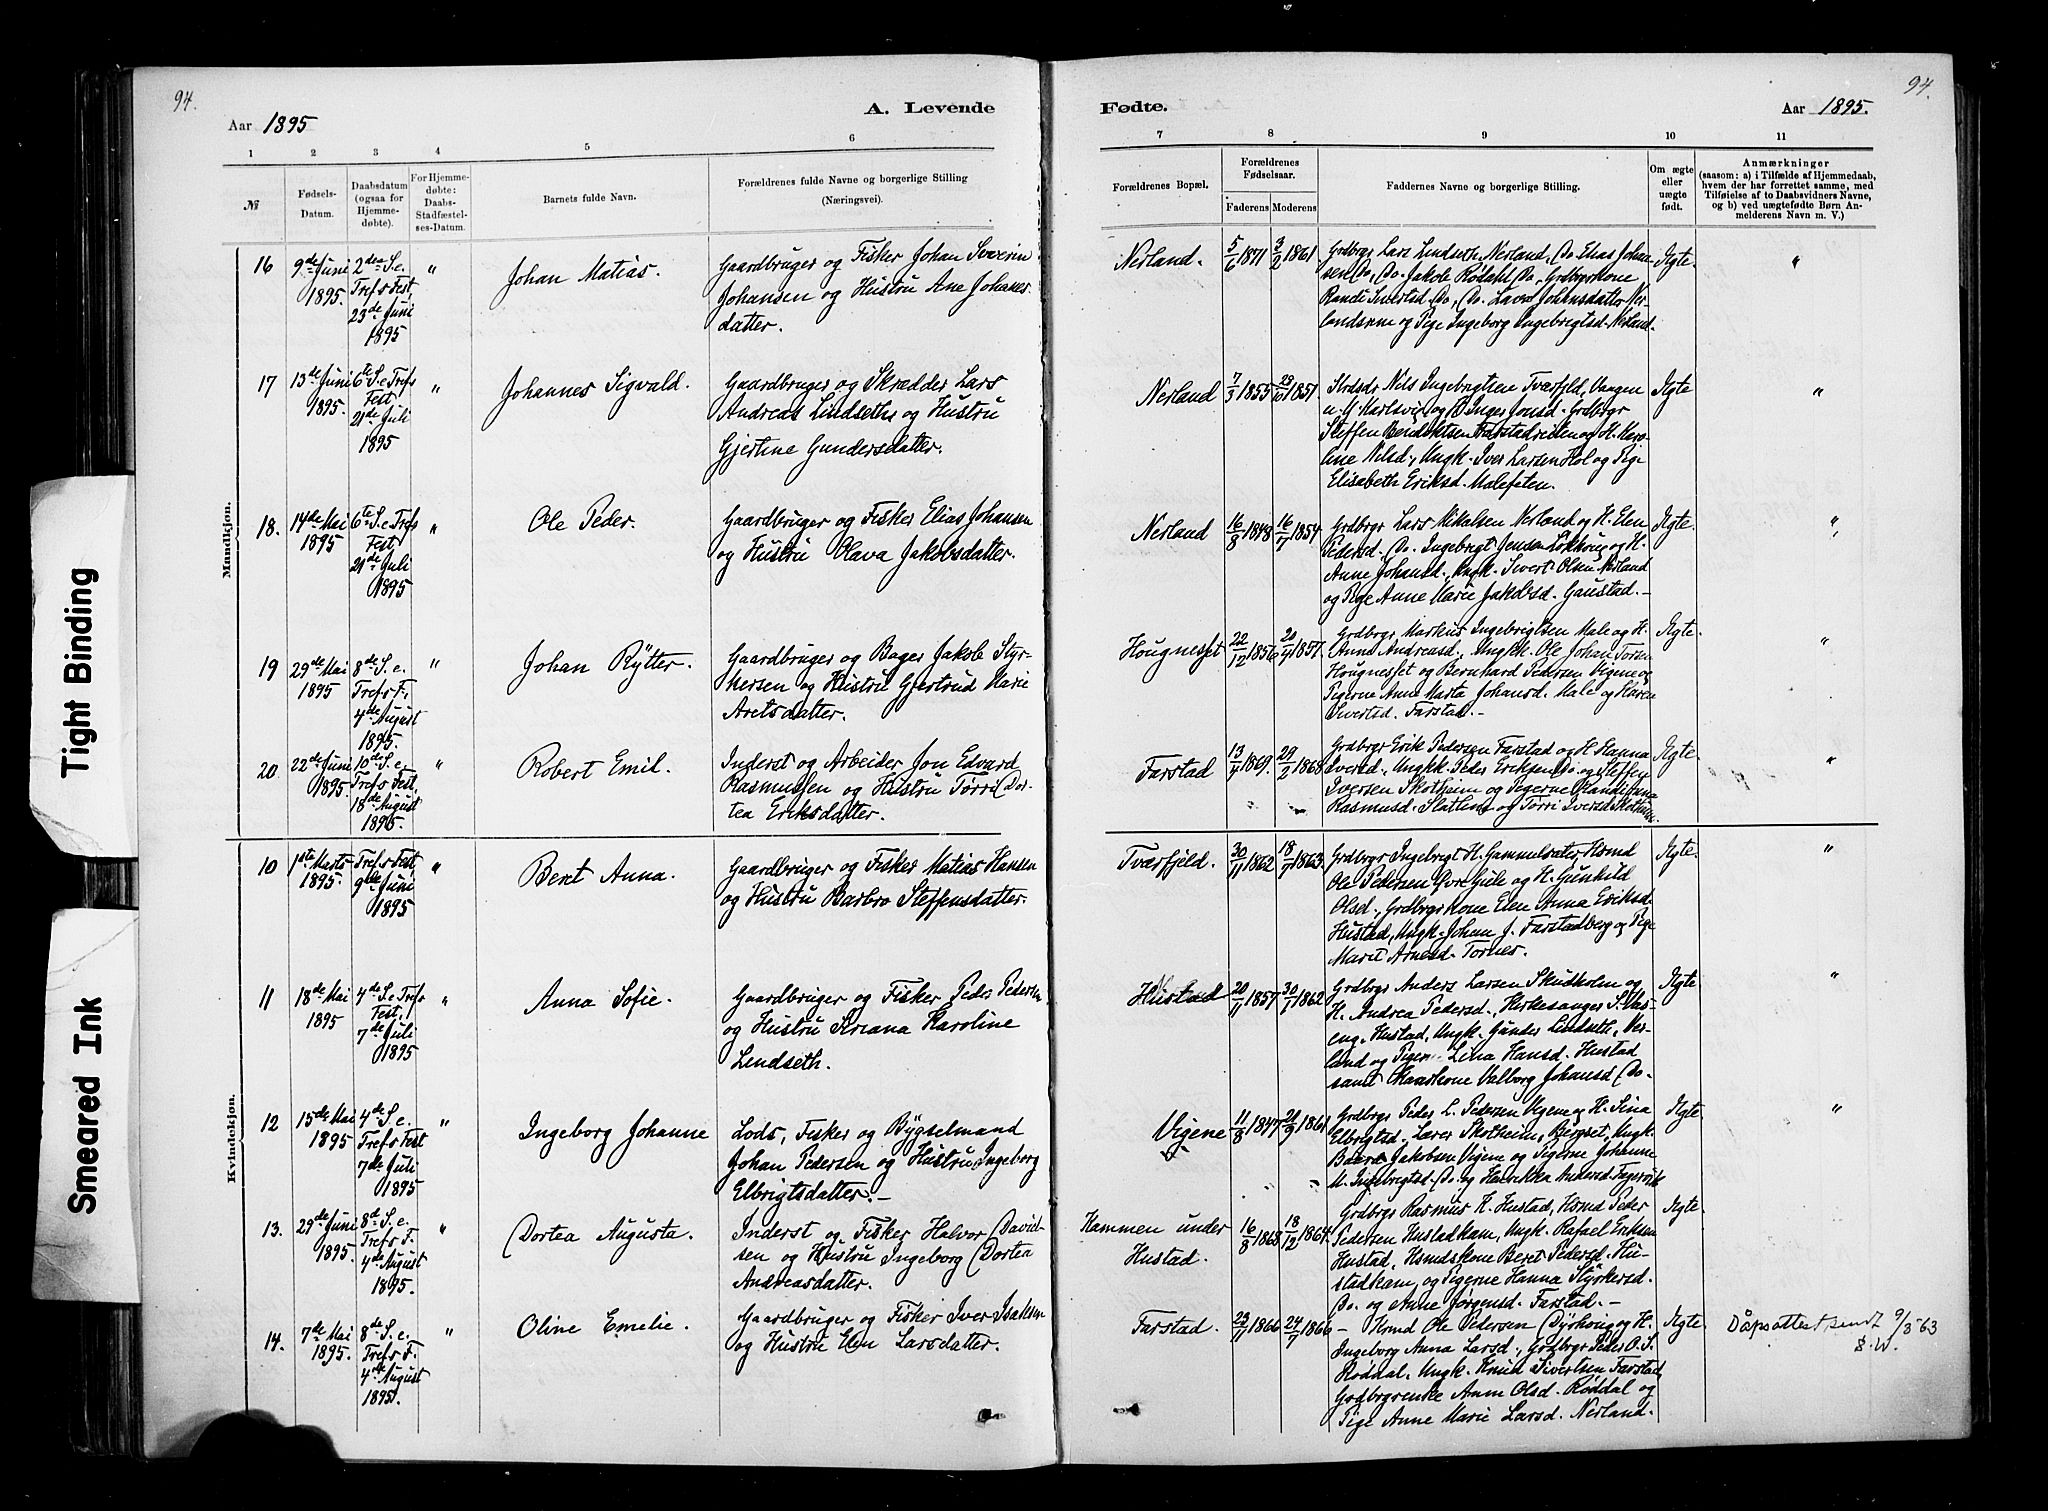 94.
94.
A. Levende
Fødte.
Aar 1895
Aar 1895.
1 2 3 4 5 6
7 8 9 10 11
№
Fødsels-
Datum.
Daabsdatum
(ogsaa for
Hjemme-
døbte).
For Hjemme-
døbte:
Daabs-
Stadfæstel-
ses-Datum.
Barnets fulde Navn.
Forældrenes fulde Navne og borgerlige Stilling
(Næringsvei).
Forældrenes Bopæl.
Forældrenes
Fødselsaar.
Faderens Moderens
Faddernes Navne og borgerlige Stilling.
Om ægte
eller
uægte
født.
Anmærkninger
(saasom: a) i Tilfælde af Hjemmedaab,
hvem der har forrettet samme, med
Tilføielse af to Daabsvidners Navne,
og b) ved uægtefødte Børn An-
melderens Navn m. V.)
Mandkjøn.
16
9de Juni
1895.
2den S. e.
Tref's Fest,
23de Juni
1895
"
Johan Matias.
Gaardbruger og Fisker Johan Severin
Johansen og Hustru Ane Johanes-
datter.
Nerland.
5/6 1871
3/2 1861
Grdbrgr Lars Lindseth Nerland, Do. Elias Johan-
sen Do, Do. Jakob Rødahl Do, Grdbgrkone
Randi Sivertsd Do, Do. Lava Johansdatter Ner-
landsrem og Pige Ingeborg Ingebrigtsd. Nerland.
Ægte
"
17
13de Juni
1895.
6te S. e. Tref's
Fest
21de Juli
1895
"
Johannes Sigvald.
Gaardbruger og Skrædder Lars
Andreas Lindseth og Hustru
Gjertine Gundersdatter.
Nerland
7/3 1855
1851.
Nils Ingebrigtsen Tværfjeld, Vangen
Inger Jonsd. Grdbrgr
Steffen Bendiktsen Farstad og H. Karo-
line Nilsd., Ungk. Iver Larsen Hol og Pige
Elisabeth Eriksd. Malefeten.
Ægte
"
18.
14de Mai
1895
6te S. e. Tref's
Fest
21de Juli
1895
"
Ole Peder.
Gaardbruger og Fisker Elias Johansen
og Hustru Olava Jakobsdatter.
Nerland
16/8 1848
16/7 1854
Grdbrgr Lars Mikalsen Nerland og H. Elen
Pedersd. Do. Ingebrigt Jensen Løkhoug og H.
Anne Johansd., Ungk. Sivert Olsen Nerland
og Pige Anne Marie Jakobsd. Gaustad.—
Ægte
"
19
29de Mai
1895
8de S. e.
Tref's F.,
4de August
1895.
"
Johan Rytter.
Gaardbruger og Bager Jakob Styr-
kersen og Hustru Gjertrud Marie
Aretsdatter.
Hougneset
22/12 1856
1857.
Grdbrgr Markus Ingebrigtsen Male og H.
Anne Andreasd., Ungkk. Ole Johan Torsen
Hougneset og Bernhard Pedersen Vigene og
Pigerne Anne Marta Johansd. Male og Karen
Sivertsd. Farstad.—
Ægte
"
20
22de Juni
1895.
10de S. e.
Tref's Fest,
18de August
1895.
"
Robert Emil.
Inderst og Arbeider Jon Edvard
Rasmussen og Hustru Torri Dor-
tea Eriksdatter.
Farstad
13/4 1869.
29/2 1868
Grdbrgr Erik Pedersen Farstad og H. Hanna
Iversd., Ungkk. Peder Eriksen Do. og Steffen
Iversen Skotheim og Pigerne Randi Anna
Rasmusd. Slatlem og Torri Iversd. Skotheim.
Ægte
"
Kvindekjøn.
10
1ste Marts
1895.
Tref's Fest,
9de Juni
1895
"
Beret Anna.
Gaardbruger og Fisker Matias Hansen
og Hustru Barbro Steffensdatter.
Tværfjeld.
30/11 1862
18/9 1863.
Grdbrgr Ingebrigt H. Gammelsæter, Hsmd
Ole Pedersen Gule og H. Gunhild
Olsd., Grdbrgrkone Elen Anna Eriksd.
Hustad, Ungk. Johan J. Farstadberg og Pige
Marit Arnesd. Tornes.
Ægte
"
11
18de Mai
1895
4de S. e. Tref's
Fest,
7de Juli
1895
"
Anna Sofie.
Gaardbruger og Fisker Peder Pedersen
og Hustru Seriana Karoline
Lindseth.
Hustad
20/11 1857
30/1 1862
Grdbrgr Anders Larsen Skudholm og
H. Andrea Pedersd., Kirkesanger S. Vas-
eng, Hustad, Ungk. Gunder Lindseth, Ner-
land og Pigen Lina Hansd. Hustad
samt Valborg Johansd. Do.
Ægte
"
12
15de Mai
1895
4de S. e.
Tref's Fest
7de Juli
1895
"
Ingeborg Johanne
Lods, Fisker og Bygselmand
Johan Pedersen og Hustru Ingeborg
Elbrigtsdatter.—
Vigene
11/8 1847
1861
Grdbrgr Peder L. Pedersen Vigene og H. Sina
Elbrigtsd. Lærer Skotheim, Bergset, Ungk.
Baard Jakobsen Vigene og Pigerne Johanne
M. Ingebrigtsd. Do. og Henrikka Andersd. Fagervik
Ægte
"
13.
29de Juni
1895.
8de S. e.
Tref's F.
4de August
1895.
"
Dortea Augusta.
Inderst og Fisker Halvor David-
sen og Hustru Ingeborg Dortea
Andreasdatter.
Kammen under
Hustad.
16/8 1868
18/12 1864.
Grdbrgr Rasmus K. Hustad, Hsmd Peder
Pedersen Hustadkam, Ungk. Rafael Eriksen
Hustad, Hsmdskone Beret Pedersd. Hu-
stadkam, og Pigerne Hanna Styrkersd.
Do. og Anne Jørgensd. Farstad.—
Ægte
"
14.
7de Mai
1895.
8de S. e.
Tref's F.
4de August
1895.
"
Oline Emelie.
Gaardbruger og Fisker Iver Isaksen
og Hustru Elen Larsdatter.
Farstad.
1866
24/7 1866
— Hsmd Ole Pedersen Dyrhoug og H.
Ingeborg Anna Larsd., Grdbrgr Peder O. S.
Røddal, Ungk. Knud Sivertsen Farstad,
Grdbrgrenke Anne Olsd. Røddal og
Pige Anne Marie Larsd. Nerland.
Ægte
Dåpsattest sendt 9/8-63
S.W.
Tight Binding
Smeared Ink